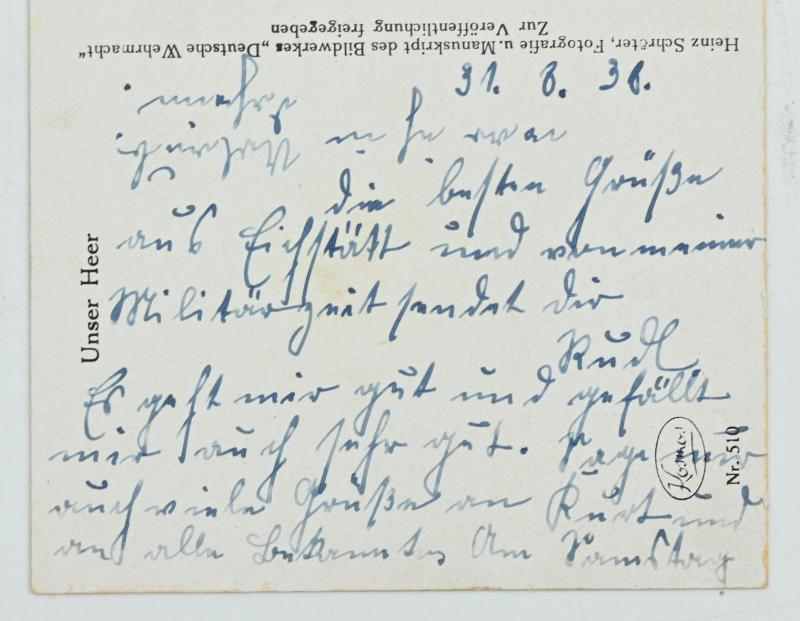 Heinz Schröter, Fotografie u. Manuskript des Bildwerkes „Deutsche Wehrmacht“
Zur Veröffentlichung freigegeben
31. 8. 38.
die besten Grüße
aus Eichstätt und von meiner
Militärzeit sendet dir
Rudl
Es geht mir gut und gefällt
mir auch sehr gut. Sage mir
auch viele Grüße an Kurt und
an alle Bekannten Am Samstag
Unser Heer
Nr. 510